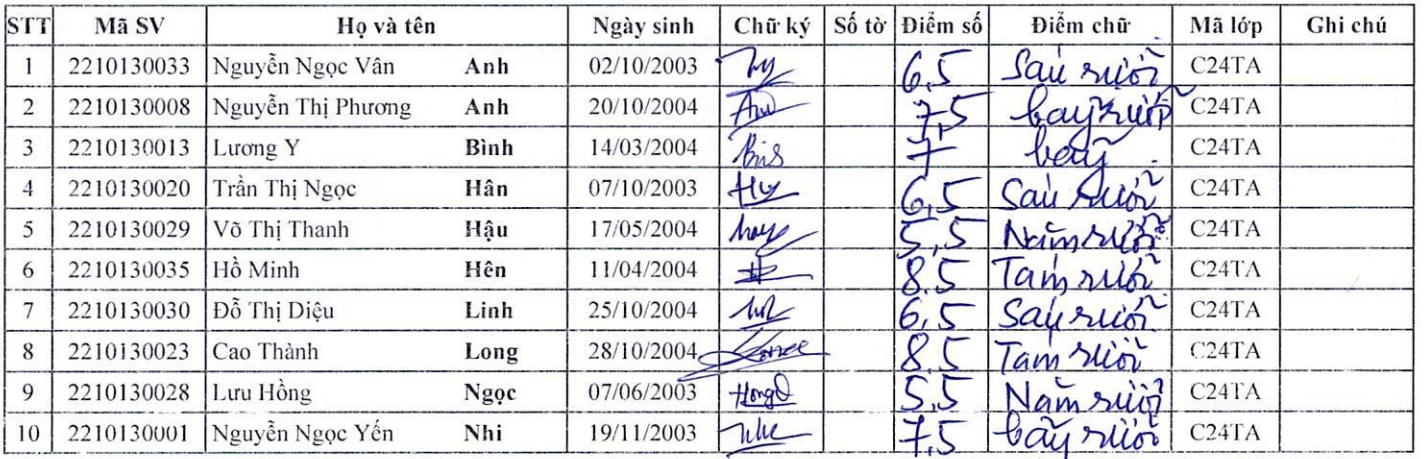 STT Mã SV Họ và tên Ngày sinh Chữ ký Số tờ Điểm số Điểm chữ Mã lớp Ghi chú
1 2210130033 Nguyễn Ngọc Vân Anh 02/10/2003 6,5 Sáu rưỡi C24TA
2 2210130008 Nguyễn Thị Phương Anh 20/10/2004 7,5 bảy rưỡi C24TA
3 2210130013 Lương Y Bình 14/03/2004 7 bảy C24TA
4 2210130020 Trần Thị Ngọc Hân 07/10/2003 6,5 Sáu rưỡi C24TA
5 2210130029 Võ Thị Thanh Hậu 17/05/2004 5,5 Năm rưỡi C24TA
6 2210130035 Hồ Minh Hên 11/04/2004 8,5 Tám rưỡi C24TA
7 2210130030 Đỗ Thị Diệu Linh 25/10/2004 6,5 Sáu rưỡi C24TA
8 2210130023 Cao Thành Long 28/10/2004 8,5 Tám rưỡi C24TA
9 2210130028 Lưu Hồng Ngọc 07/06/2003 5,5 Năm rưỡi C24TA
10 2210130001 Nguyễn Ngọc Yến Nhi 19/11/2003 7,5 bảy rưỡi C24TA